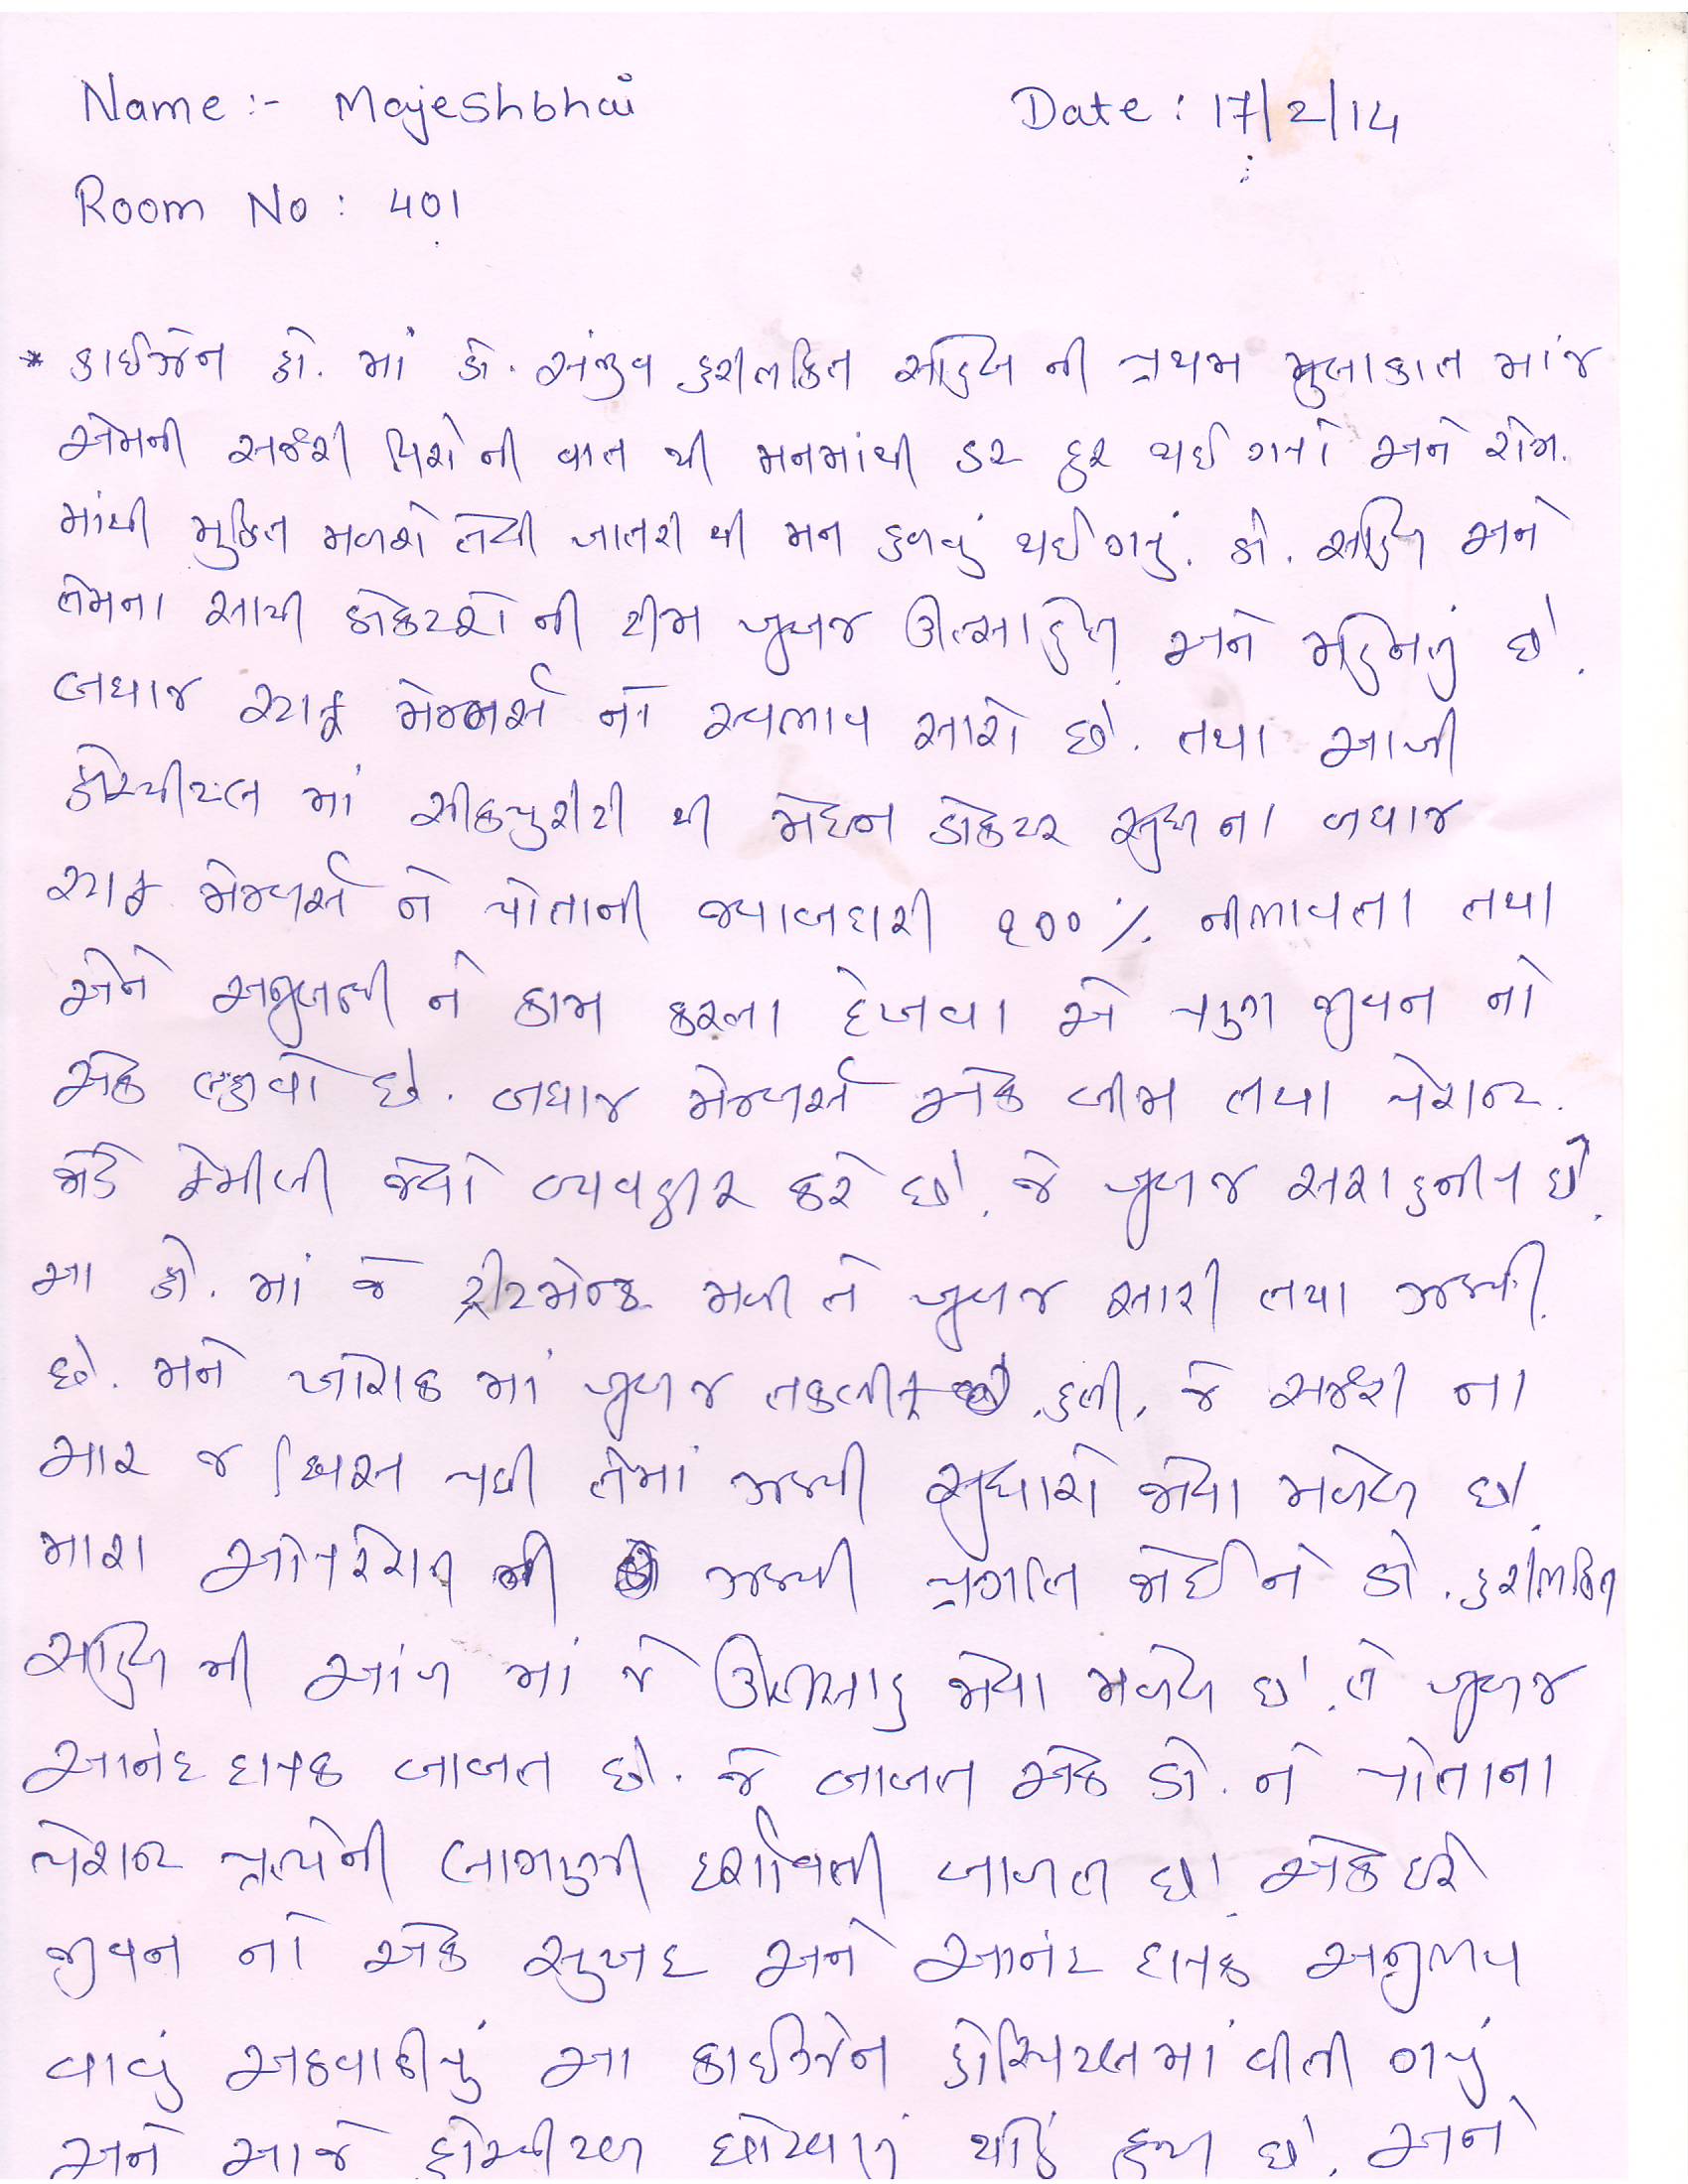 Name :- Mayjeshbhai
Date : 17/2/14
Room No : 401
* કાઈઝેન હો. માં ડો. સંજીવ હરીભક્તિ સાહિબ ની પ્રથમ મુલાકાત માંજ
એમની સર્જરી વિશે ની વાત થી મનમાંથી ડર દુર થઈ ગયો અને રોગ.
માંથી મુક્તિ મળશે તેવી ખાતરી થી મન હળવું થઈ ગયું. ડો. સાહિબ અને
તેમના સાથી ડોક્ટરો ની ટીમ ખુબજ ઊત્સાહિત અને મહેનતું છે.
બધાજ સ્ટાફ મેમ્બર્સ નો સ્વભાવ સારો છે. તથા આખી
હોસ્પીટલ માં સીક્યુરીટી થી મેઇન ડોક્ટર સુધીના બધાજ
સ્ટાફ મેમ્બર્સ ને પોતાની જ્વાબદારી ૧૦૦% નીભાવતા તથા
એને સમજી ને કામ કરતા દેખવા એ પણ જીવન નો
એક લ્હાવો છે. બધાજ મેમ્બર્સ એક બીજા તથા પેશન્ટ.
જોડે ફેમીલી જેવો વ્યવહાર કરે છે. જે ખુબજ સરાહનીય છે.
આ હો. માં જે ટ્રીટમેન્ટ મળી તે ખુબજ સારી તથા ઝડપી
છે. મને ખોરાક માં ખુબજ તકલીફ હતી, જે સર્જરી ના
ચાર જ દિવસ પછી તેમાં ઝડપી સુધારો જોવા મળેલ છે.
મારા ઓપરેશન ની ઝડપી પ્રગતિ જોઈને ડો. હરીભક્તિ
સાહિબ ની આંખ માં જે ઊત્સાહ જોવા મળેલ છે. તે ખુબજ
આનંદ દાયક બાબત છે. જે બાબત એક ડો. ને પોતાના
પેશન્ટ પ્રત્યેની લાગણી દર્શાવતી બાબત છે. એકંદરે
જીવન નો એક સુખદ અને આનંદ દાયક અનુભવ
વાળું અઠવાડીયું આ કાઈઝેન હોસ્પિટલમાં વીતી ગયું
અને આજે હોસ્પીટલ છોડવાનું થયું છે. અને